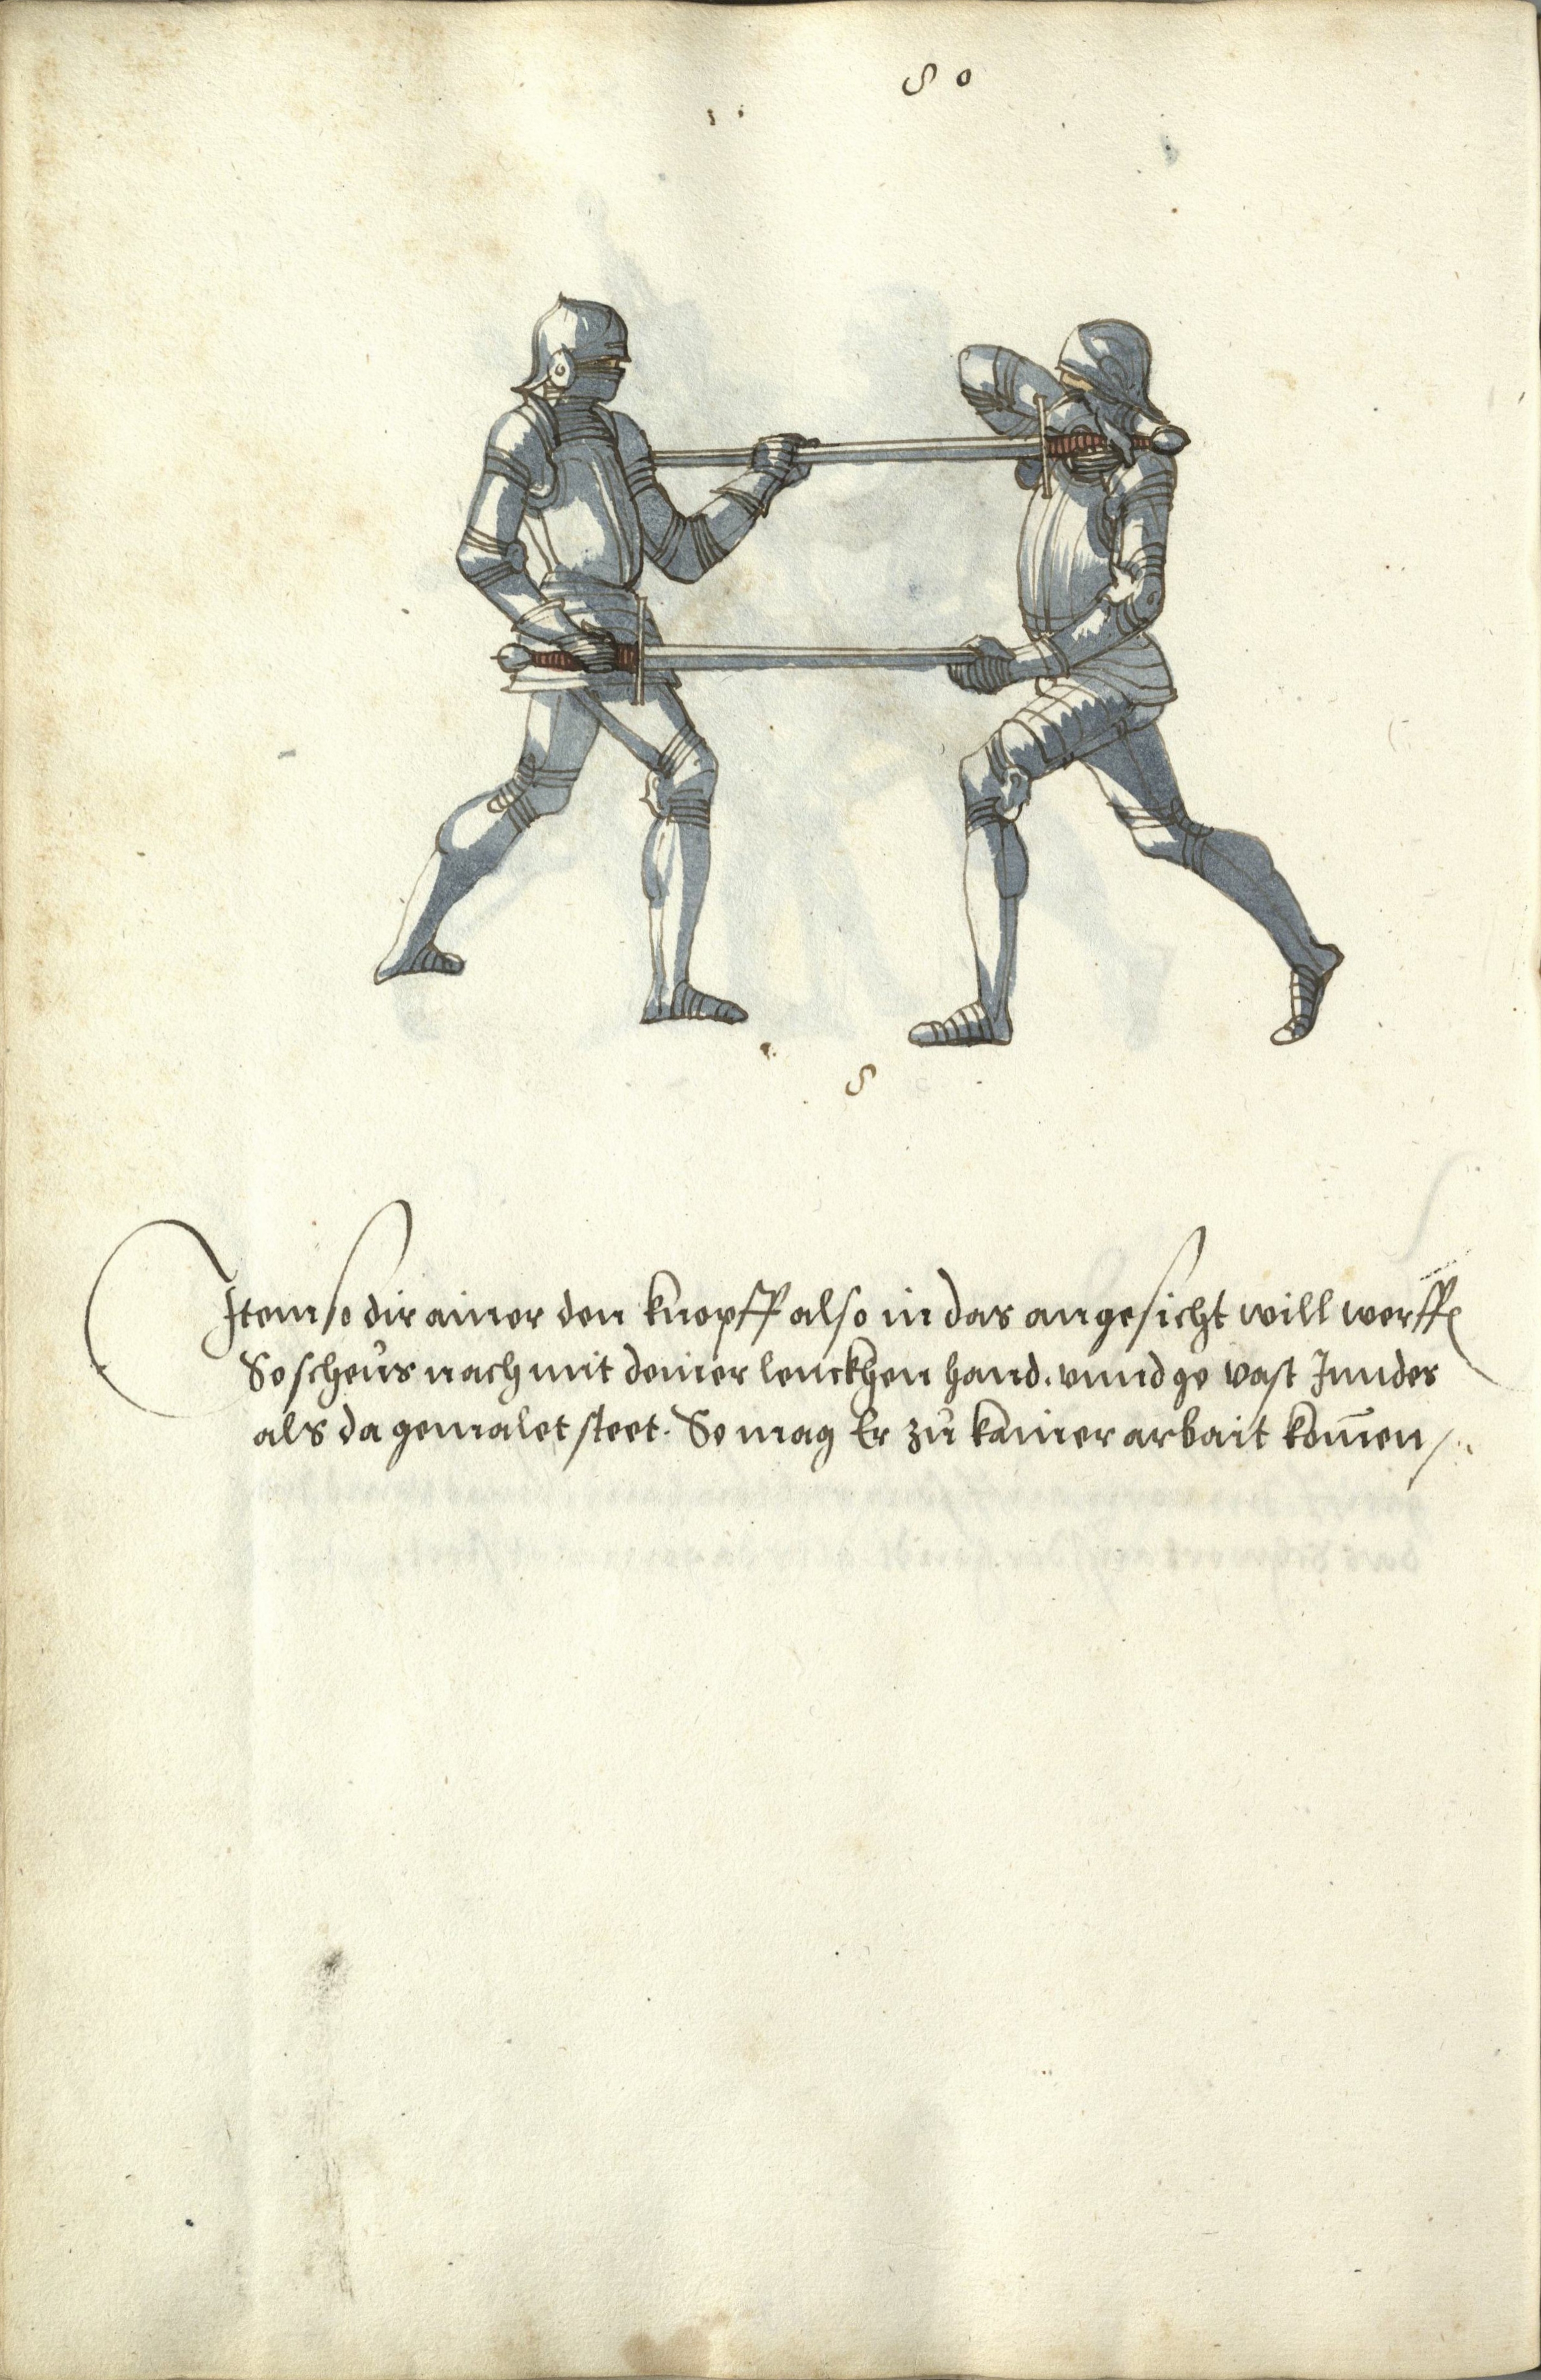 8 0
8
Item so dir ainer den knopff also in das angesicht will werffen
So scheüs nach mit deiner lenckhen hand. vnnd ge vast Inn der
als da gemalet steet. So mag Er zů kainer arbait kom̄en /.